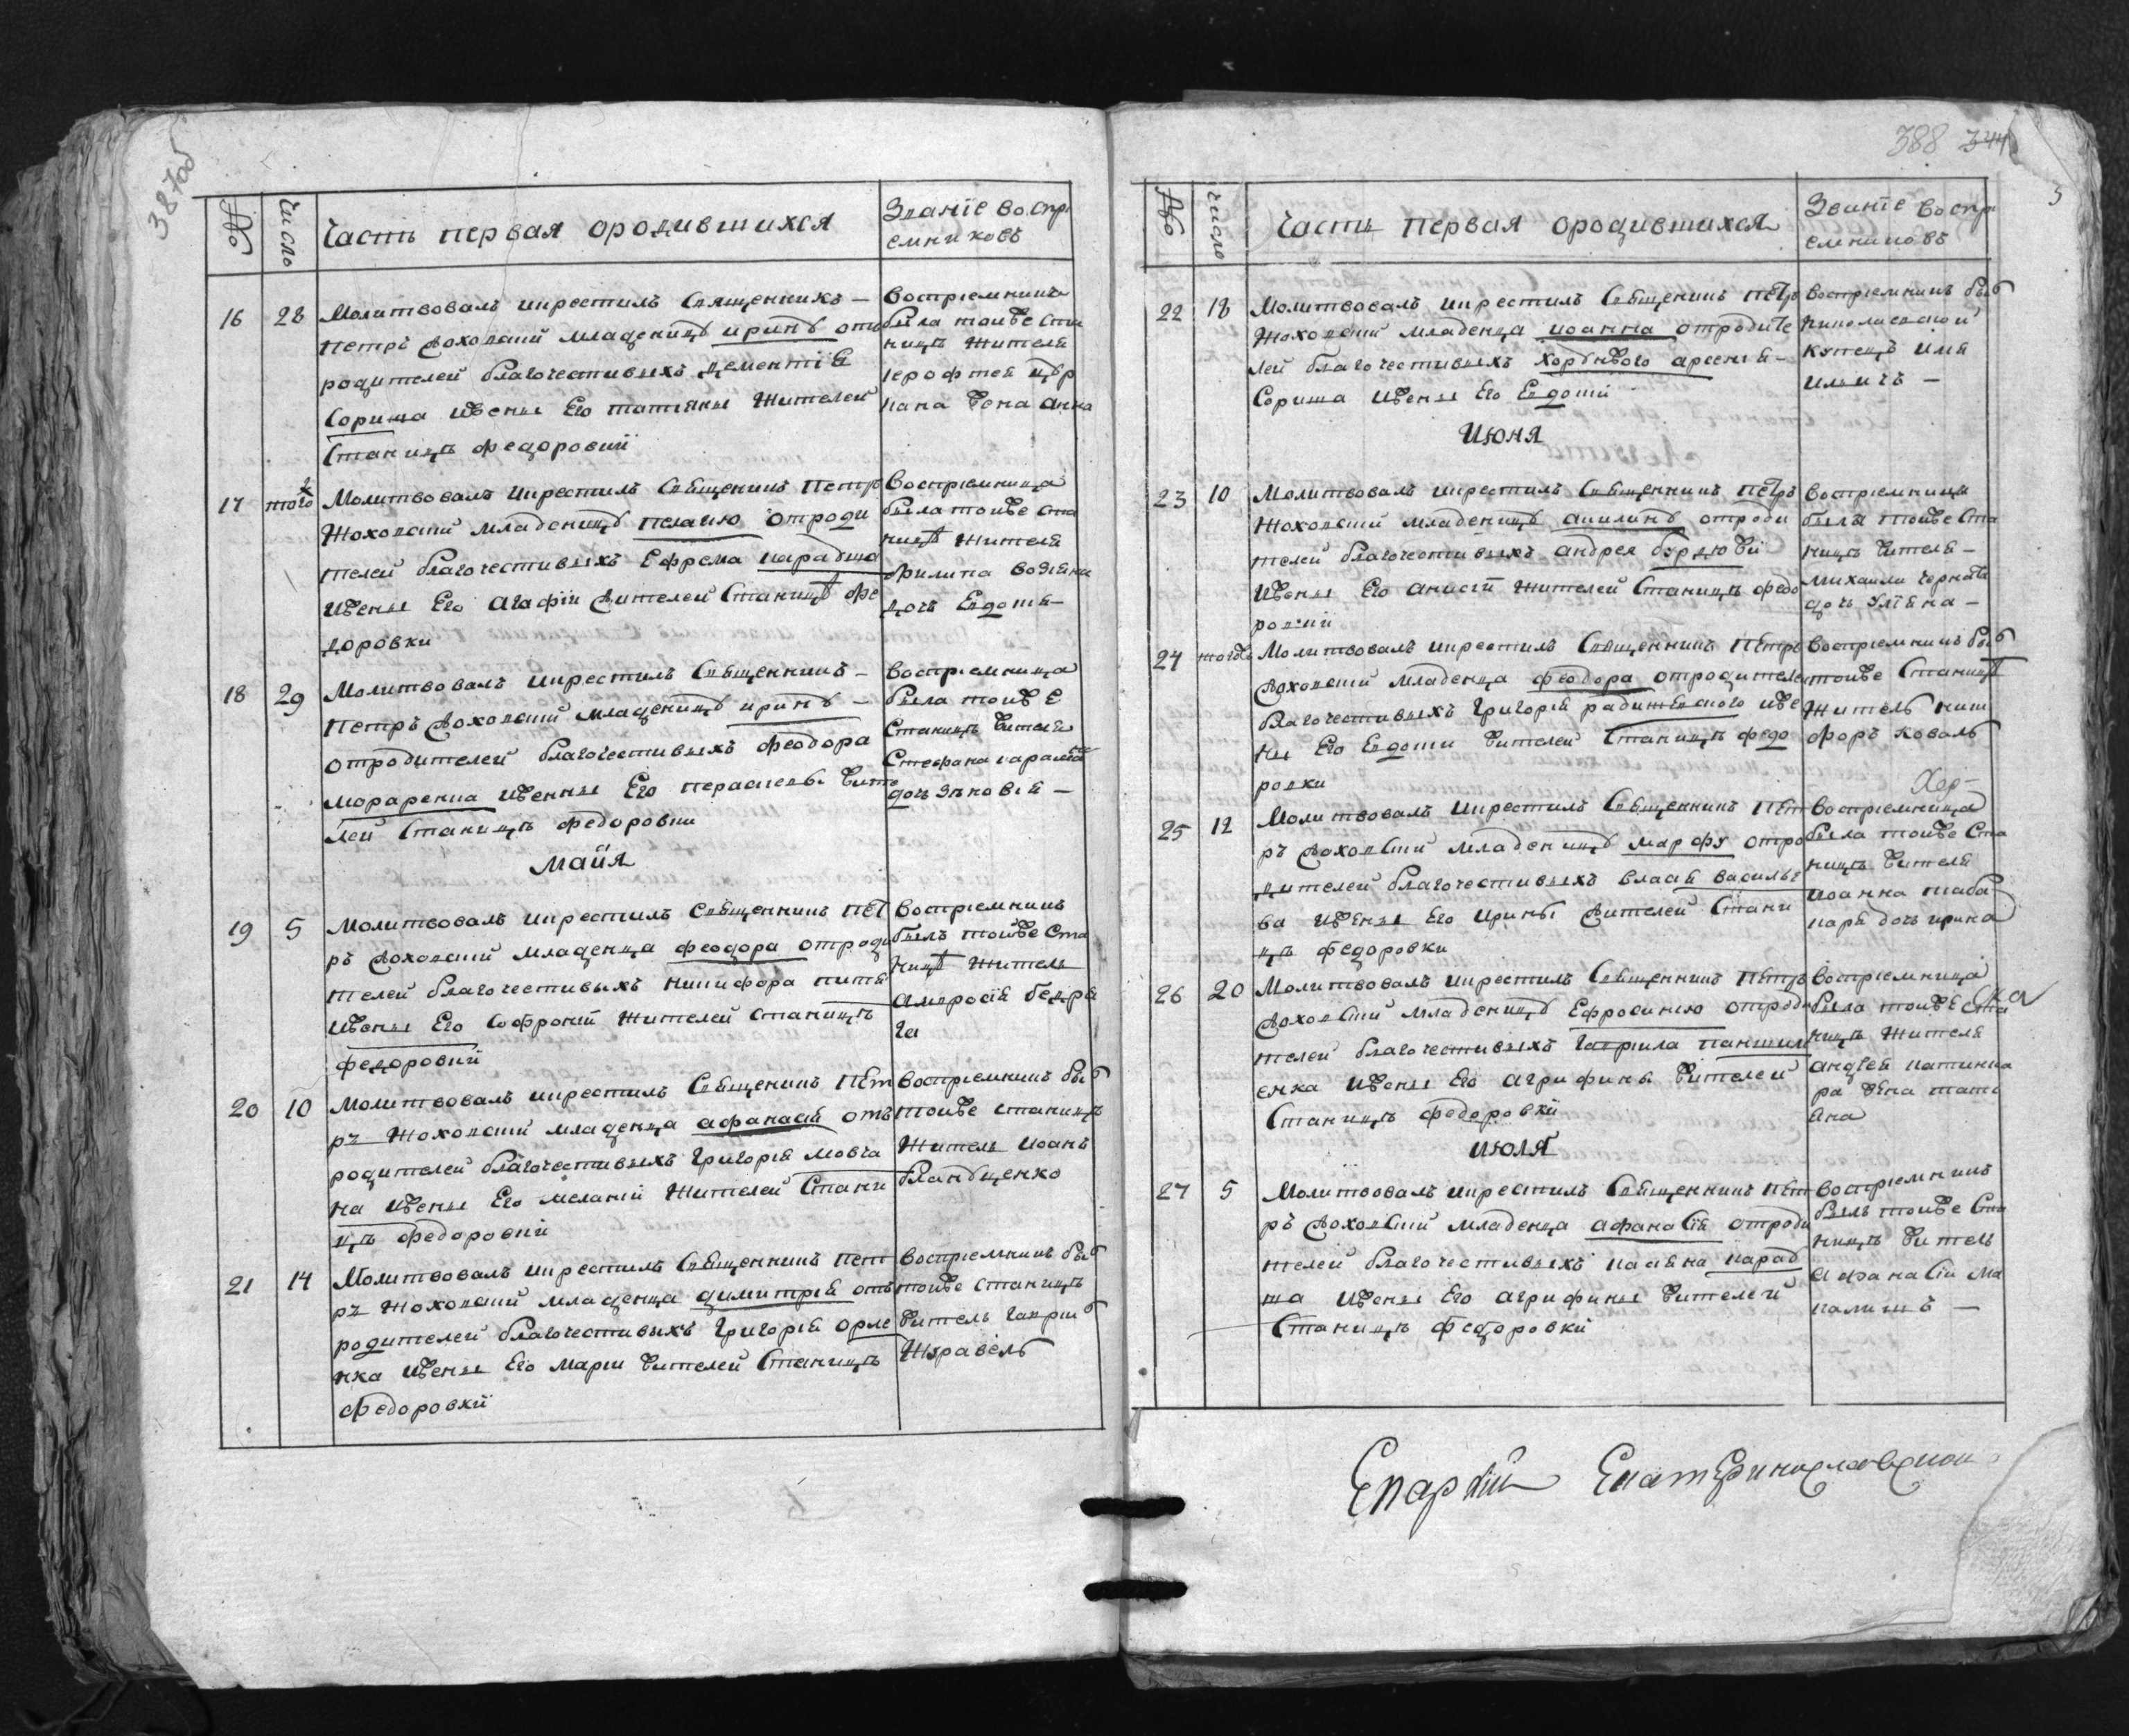 387об
№
Число
Часть первая ородившихся
Званїе воспрі
емниковъ
16 28 Молитвовалъ икрестилъ Священникъ —
Петръ Жоховский младеницу ирину отъ
родителей благочестивыхъ Дементїя
Сориша ижены Его татияны Жителей
Станицъ Федоровки
Воспріемница
была тоиже ста
ницъ Жителя
Ерофтея цвѣр
кана жена Анна
17 того Молитвовалъ икрестилъ Священникъ Петръ
Жоховский младеницу Пелагию отроди
телей благочестивыхъ Ефрема карабша
ижены Его Агафіи жителей Станицѣ Фе
доровки
Воспріемница
была тоиже ста
ницѣ Жителя
Филипа
дочъ Евдокія
18 29 Молитвовалъ икрестилъ Священникъ —
Петръ Жоховский младеницу ирину —
отродителей благочестивыхъ Феодора
Мораренка иженны Его Парасковѣ жите
лей Станицъ Федоровки
Воспріемница
была тоиже
Станицъ жителя
Стефана
дочъ Зѣновія —
Майя
19 5 Молитвовалъ икрестилъ Священникъ Пет
ръ Жоховский младенца Феодора отроди
телей благочестивыхъ Никифора
ижены Его Софроній Жителей станицъ
Федоровкй
Воспріемникъ
былъ тоиже ста
ницѣ Житель
Амвросій бедра
га
20 10 Молитвовалъ икрестилъ Священикъ Пет
ръ Жоховский младенца Афанасія отъ
родителей благочестивыхъ Григорія Мовча
на ижены Его Меланій Жителей Стани
цъ Федоровкй
Воспріемникъ былъ
тоиже станицъ
Житель Иоанъ
бландценко
21 14 Молитвовалъ икрестилъ Священникъ Пет
ръ Жоховский младенца Димитрія отъ
родителей благочестивыхъ Григорія Орле
нка ижены Его Маріи жителей Станицъ
Федоровкй
Воспріемникъ былъ
тоиже станицъ
житель Гавріилъ
Журавель
388 344
№
Число
Часть Первая ородившихся
Званїе Воспрі
емниковъ
22 18 Молитвовалъ икрестилъ Священикъ Петръ
Жоховский младенца Иоанна отродите
лей благочестивыхъ хорунжого Арсенія
Сориша ижены Его Евдокій
Воспріемникъ былъ
Николаевской
Купецъ Илія
Иличъ —
Июня
23 10 Молитвовалъ икрестилъ Священникъ Петръ
Жоховский младеницу Акилину отроди
телей благочестивыхъ Андрея
ижены Его Анисій Жителей Станицъ Федо
ровкй
Воспріемница
была тоиже Ста
ницъ жителя —
Михаила
дочъ Улїяна —
24 тогожъ Молитвовалъ икрестилъ Священникъ Петръ
Жоховский младенца Феодора отродителей
благочестивыхъ Григорія иже
ны Его Евдокіи жителей Станицъ Федо
ровки
Воспріемникъ былъ
тоиже Станицѣ
Житель Ники
форъ Коваль
25 12 Молитвовалъ икрестилъ Священникъ Пет
ръ Жоховский младеницу Марфу отро
дителей благочестивыхъ Власія Василье
ва ижены Его Ирины жителей Стани
цъ Федоровки
Воспріемница
была тоиже Ста
ницъ жителя
Иоанна таба
каря дочъ ирина
26 20 Молитвовалъ икрестилъ Священникъ Петръ
Жоховский младеницу Ефросинію отроди
телей благочестивыхъ Гавриила Паншил
енка ижены Его Агрифины жителей
Станицъ Федоровкй
Воспріемница
была тоиже Ста
ницъ Жителя
Андрей
ра жена тати
яна
июля
27 5 Молитвовалъ икрестилъ Священникъ Пет
ръ Жоховский младенца Афанасія отроди
телей благочестивыхъ Касіяна Караб
ша ижены Его Агрифины жителей
Станицъ Федоровкй
Воспріемникъ
былъ тоиже Ста
ницъ житель
Афанасій Ма
калишъ —
Епархій Екатеринославской